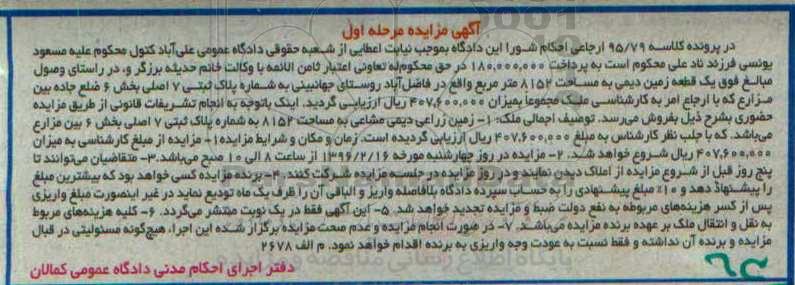 آگهی مزایده مرحله اول
در پرونده کلاسه ۹۵/۷۹ ارجاعی احکام شورا این دادگاه بموجب نیابت اعطایی از شعبه حقوقی دادگاه عمومی علی‌آباد کتول محکوم علیه مسعود
یونسی فرزند ناد علی محکوم است به پرداخت ۱۸۰,۰۰۰,۰۰۰ در حق محکوم‌له تعاونی اعتبار ثامن الائمه با وکالت خانم حدیثه برزگر و، در راستای وصول
مبالغ فوق یک قطعه زمین دیمی به مساحت ۸۱۵۲ متر مربع واقع در فاضل‌آباد روستای جهانبینی به شماره پلاک ثبتی ۷ اصلی بخش ۶ ضلع جاده بین
مزارع که با ارجاع امر به کارشناسی ملک مجموعا بمیزان ۴۰۷,۶۰۰,۰۰۰ ریال ارزیابی گردید. اینک باتوجه به انجام تشریفات قانونی از طریق مزایده
حضوری بشرح ذیل بفروش می‌رسد. توصیف اجمالی ملک: ۱- زمین زراعی دیمی مشاعی به مساحت ۸۱۵۲ به شماره پلاک ثبتی ۷ اصلی بخش ۶ بین مزارع
می‌باشد. که با جلب نظر کارشناس به مبلغ ۴۰۷,۶۰۰,۰۰۰ ریال ارزیابی گردیده است. زمان و مکان و شرایط مزایده ۱- مزایده از مبلغ کارشناسی به میزان
۴۰۷,۶۰۰,۰۰۰ ریال شروع خواهد شد. ۲- مزایده در روز چهارشنبه مورخه ۱۳۹۶/۲/۱۶ از ساعت ۸ الی ۱۰ صبح می‌باشد. ۳- متقاضیان می‌توانند تا
پنج روز قبل از شروع مزایده از املاک دیدن نمایند و در روز مزایده در جلسه مزایده شرکت کنند. ۴- برنده مزایده کسی خواهد بود که بیشترین مبلغ
را پیشنهاد دهد و ۱۰٪ مبلغ پیشنهادی را به حساب سپرده دادگاه بلافاصله واریز و الباقی آن را ظرف یک ماه تودیع نماید در غیر اینصورت مبلغ واریزی
پس از کسر هزینه‌های مربوطه به نفع دولت ضبط و مزایده تجدید خواهد شد. ۵- این آگهی فقط در یک نوبت منتشر می‌گردد. ۶- کلیه هزینه‌های مربوط
به نقل و انتقال ملک بر عهده برنده مزایده می‌باشد. ۷- در صورت انجام مزایده و عدم صحت مزایده برگزار شده این اجرا، هیچگونه مسئولیتی در قبال
مزایده و برنده آن نداشته و فقط نسبت به عودت وجه واریزی به برنده اقدام خواهد نمود. م الف ۲۶۷۸
دفتر اجرای احکام مدنی دادگاه عمومی کمالان